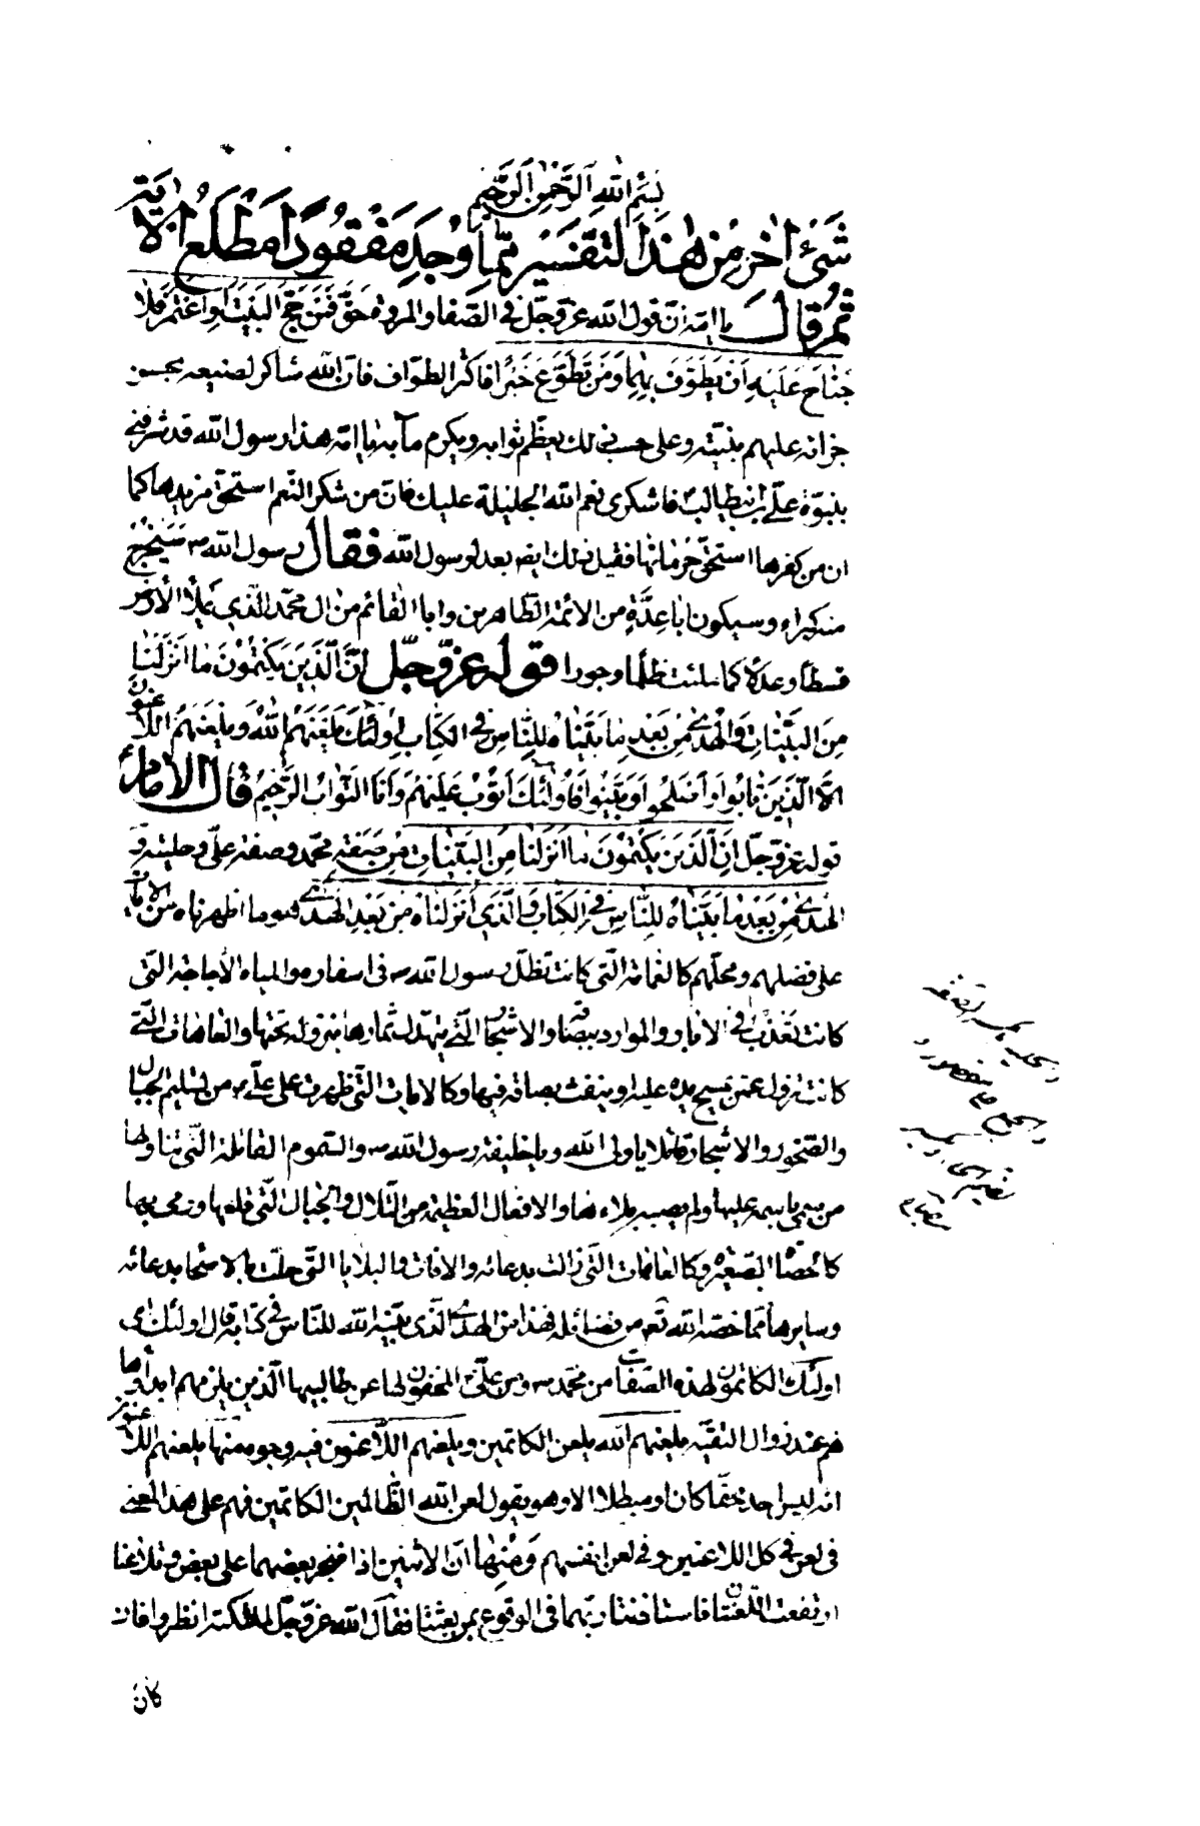 بِسْمِ اللهِ الرَّحْمٰنِ الرَّحِيمِ
شَيْءٌ اٰخَرُ مِنْ هٰذَا التَّفْسِيرِ مِمَّا وُجِدَ مَفْقُودًا مَطْلَعُ الاٰية
ثُمَّ قَالَ يا امة ان قول الله عز وجل في الصفا والمروة حَقٌّ فَمَنْ حَجَّ الْبَيْتَ اَوِاعْتَمَرَ فَلا
جُنَاحَ عَلَيْهِ اَنْ يَطَّوَّفَ بِهِمَا وَمَنْ تَطَوَّعَ خَيْرًا فاكثر الطواف فان الله شاكر لصنيعه بحسن
جزائه عليم بنيته وعلى حسب ذلك يعظم ثوابه ويكرم مآبه يا امة هذا رسول الله قد شرفني
بنبوة علي بن ابيطالب فاشكري نعم الله الجليلة عليك فان من شكر النعم استحق مزيدها كما
ان من كفرها استحق حرمانها فقيل ذلك ايضا بعد لرسول الله فقال رسول الله ص سَيَخْرُجُ
منه كبراء وسيكون ابا عِدَّةٍ من الائمة الطاهرين وابا القائم من ال محمد الذي يملأ الارض
قسطا وعدلا كما ملئت ظلما وجورا قوله عز وجل اِنَّ الَّذِينَ يَكْتُمُونَ مَا اَنْزَلْنَا
مِنَ الْبَيِّنَاتِ وَالْهُدٰى مِنْ بَعْدِ مَا بَيَّنَّاهُ لِلنَّاسِ فِي الْكِتَابِ اُولٰئِكَ يَلْعَنُهُمُ اللهُ وَيَلْعَنُهُمُ اللَّاعِنُونَ
اِلَّا الَّذِينَ تَابُوا وَاَصْلَحُوا وَبَيَّنُوا فَاُولٰئِكَ اَتُوبُ عَلَيْهِمْ وَاَنَا التَّوَّابُ الرَّحِيمُ قال الامام
قوله عز وجل اِنَّ الَّذِينَ يَكْتُمُونَ مَا اَنْزَلْنَا مِنَ الْبَيِّنَاتِ مِنْ صِفَةِ محمد وصفة علي وحليته وَ
الْهُدٰى مِنْ بَعْدِ مَا بَيَّنَّاهُ لِلنَّاسِ فِي الْكِتَابِ وَالَّذِي اَنْزَلْنَاهُ مِنْ بَعْدِ الْهُدٰى هو ما اظهرناه من الايات
على فضلهم ومحلهم كالغمامة التي كانت تظل رسول الله ص في اسفاره والمياه الاجاجة التي
كانت تعذب في الابار والموارد ببصاقه والاشجار التي يتهدل ثمارها بنزوله تحتها والعاهات التي
كانت تزول عمن يمسح يده عليه او ينفث بصاقه فيها وكالايات التي ظهرت على علي ع من تسليم الجبال
والصخور والاشجار قائلا يا ولي الله ويا خليفة رسول الله ص والسموم القاتلة التي تناولها
من سمى باسمه عليها ولم يصبه بلاءها والافعال العظيمة من التلال والجبال التي قلعها ورمى بها
كالحصاة الصغيرة وكالعاهات التي زالت بدعائه والافات والبلايا التي حلت بالاصحاء بدعائه
وسايرها مما خصه الله تع من فضائله فهذا من الهدى الذي بينه الله للناس في كتابه قال اولئك اى
اولئك الكاتمون لهذه الصفات من محمد ص ومن علي ع المخفون لها عن طالبيها الذين يلزمهم ابداؤها
لهم عند زوال التقية يلعنهم الله يلعن الكاتمين ويلعنهم اللاعنون فيه وجوه منها يلعنهم اللاعنون
انه ليس احد محقا كان او مبطلا الا وهو يقول لعن الله الظالمين الكاتمين فهم على هذا المعنى
في لعن كل اللاعنين وفي لعن انفسهم وَمِنْهَا ان الاثنين اذا ضجر بعضهما على بعض وتلاعنا
ارتفعت اللعنتان فاستاذنتا ربهما في الوقوع بمن بعثتا فقال الله عز وجل لملئكته انظروا فان
كان